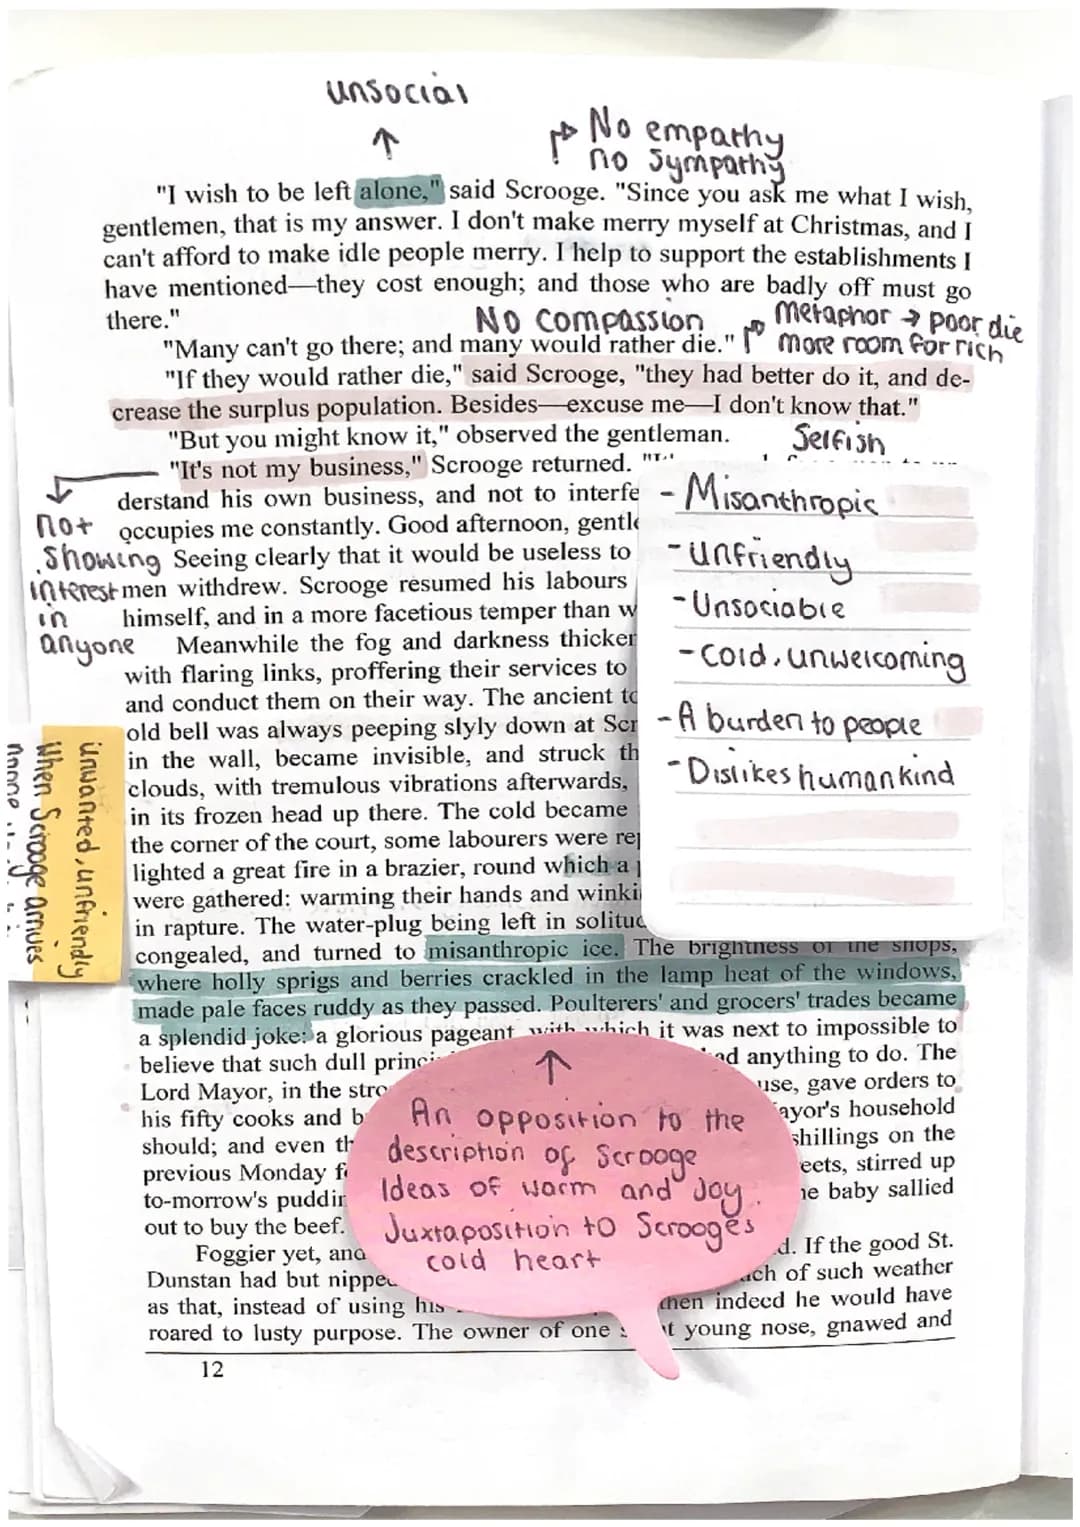 unsocial
No empathy
no sympathy
"I wish to be left alone," said Scrooge. "Since you ask me what I wish,
gentlemen, that is my answer. I don't make merry myself at Christmas, and I
can't afford to make idle people merry. I help to support the establishments I
have mentioned—they cost enough; and those who are badly off must go
there."
No compassion
Metaphor → poor die
more room for rich
"Many can't go there; and many would rather die."
"If they would rather die," said Scrooge, "they had better do it, and de-
crease the surplus population. Besides—excuse me—I don't know that."
"But you might know it," observed the gentleman.
Selfish
"It's not my business," Scrooge returned.
derstand his own business, and not to interfe
occupies me constantly. Good afternoon, gentle
Seeing clearly that it would be useless to
men withdrew. Scrooge resumed his labours
himself, and in a more facetious temper than w
Meanwhile the fog and darkness thicken
with flaring links, proffering their services to
and conduct them on their way. The ancient to
old bell was always peeping slyly down at Scr
in the wall, became invisible, and struck th
clouds, with tremulous vibrations afterwards,
in its frozen head up there. The cold became
the corner of the court, some labourers were rep
lighted a great fire in a brazier, round which a
were gathered: warming their hands and winki
in rapture. The water-plug being left in solitud
congealed, and turned to misanthropic ice. The brightness of the shops,
where holly sprigs and berries crackled in the lamp heat of the windows,
made pale faces ruddy as they passed. Poulterers' and grocers' trades became
a splendid joke: a glorious pageant, with which it was next to impossible to
believe that such dull princi ad anything to do. The
Lord Mayor, in the stro use, gave orders to
his fifty cooks and b ayor's household
should; and even th shillings on the
previous Monday f eets, stirred up
to-morrow's puddin he baby sallied
out to buy the beef.
Foggier yet, and d. If the good St.
Dunstan had but nipped ch of such weather
as that, instead of using his then indeed he would have
roared to lusty purpose. The owner of one s t young nose, gnawed and
12
not
showing
interest
in
anyone
- Misanthropic
- Unfriendly
- Unsociable
- Cold, unwelcoming
- A burden to people
- Dislikes humankind
Unwanted, unfriendly
When Scrooge arrives
An opposition to the
description of Scrooge
Ideas of warm and Joy.
Juxtaposition to Scrooges
cold heart